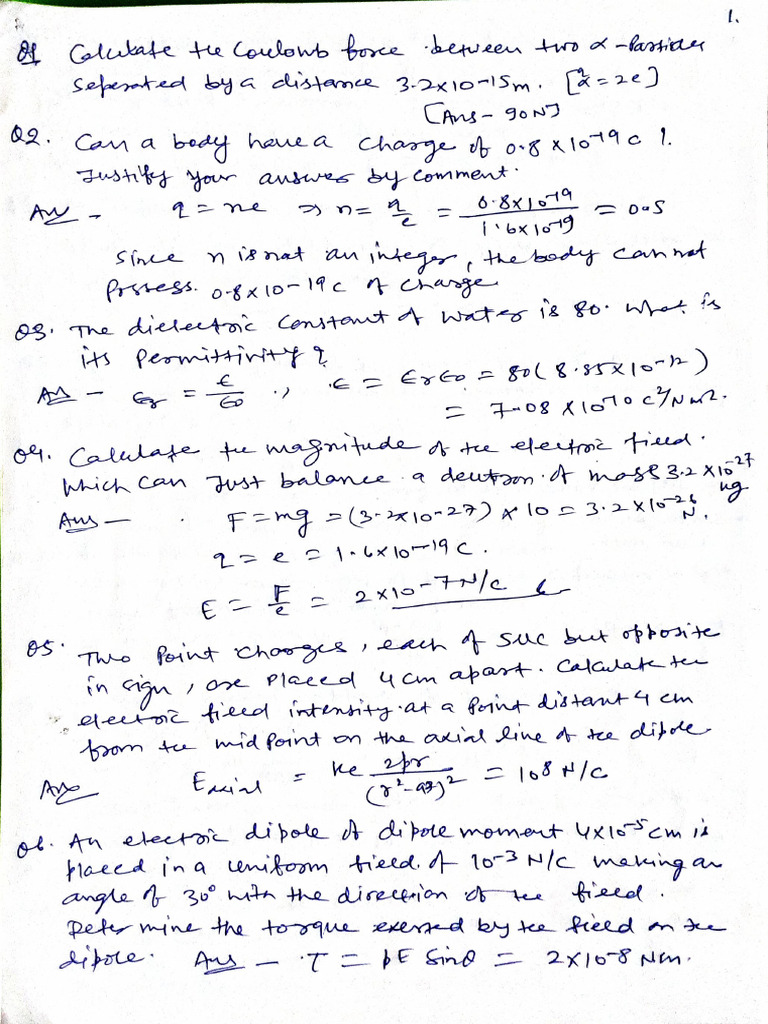 1.
Q1 Calculate the Coulomb force between two α-particles
seperated by a distance 3.2x10-15m. [q α = 2e]
[Ans - 90N]
Q2. Can a body have a charge of 0.8 x 10-19 C ?
Justify your answer by comment.
Ans - q = ne => n = q/e = 0.8x10-19 / 1.6x10-19 = 0.5
Since n is not an integer, the body cannot
possess. 0.8x10-19C of charge
Q3. The dielectric constant of water is 80. What is
its permittivity ?
Ans - εr = ε/ε0 ∴ ε = εrε0 = 80(8.85x10-12)
= 7.08 x 10-10 C2/Nm2.
Q4. Calculate the magnitude of the electric field.
Which can Just balance a deutron of mass 3.2 x10-27
kg
Ans - F = mg = (3.2x10-27) x 10 = 3.2x10-26
N.
q = e = 1.6x10-19C.
E = F/e = 2x10-7N/C
Q5. Two Point charges, each of 5uC but opposite
in sign, are placed 4cm apart. Calculate the
electric field intensity at a point distant 4 cm
from the midpoint on the axial line of the dipole
Ans Eaxial = ke 2pr/(r2-a2)2 = 108 N/C
Q6. An electric dipole of dipole moment 4x10-5 cm is
placed in a uniform field of 10-3 N/C making an
angle of 30° with the direction of the field.
Determine the torque exerted by the field on the
dipole. Ans - τ = pE Sinθ = 2x10-8 Nm.